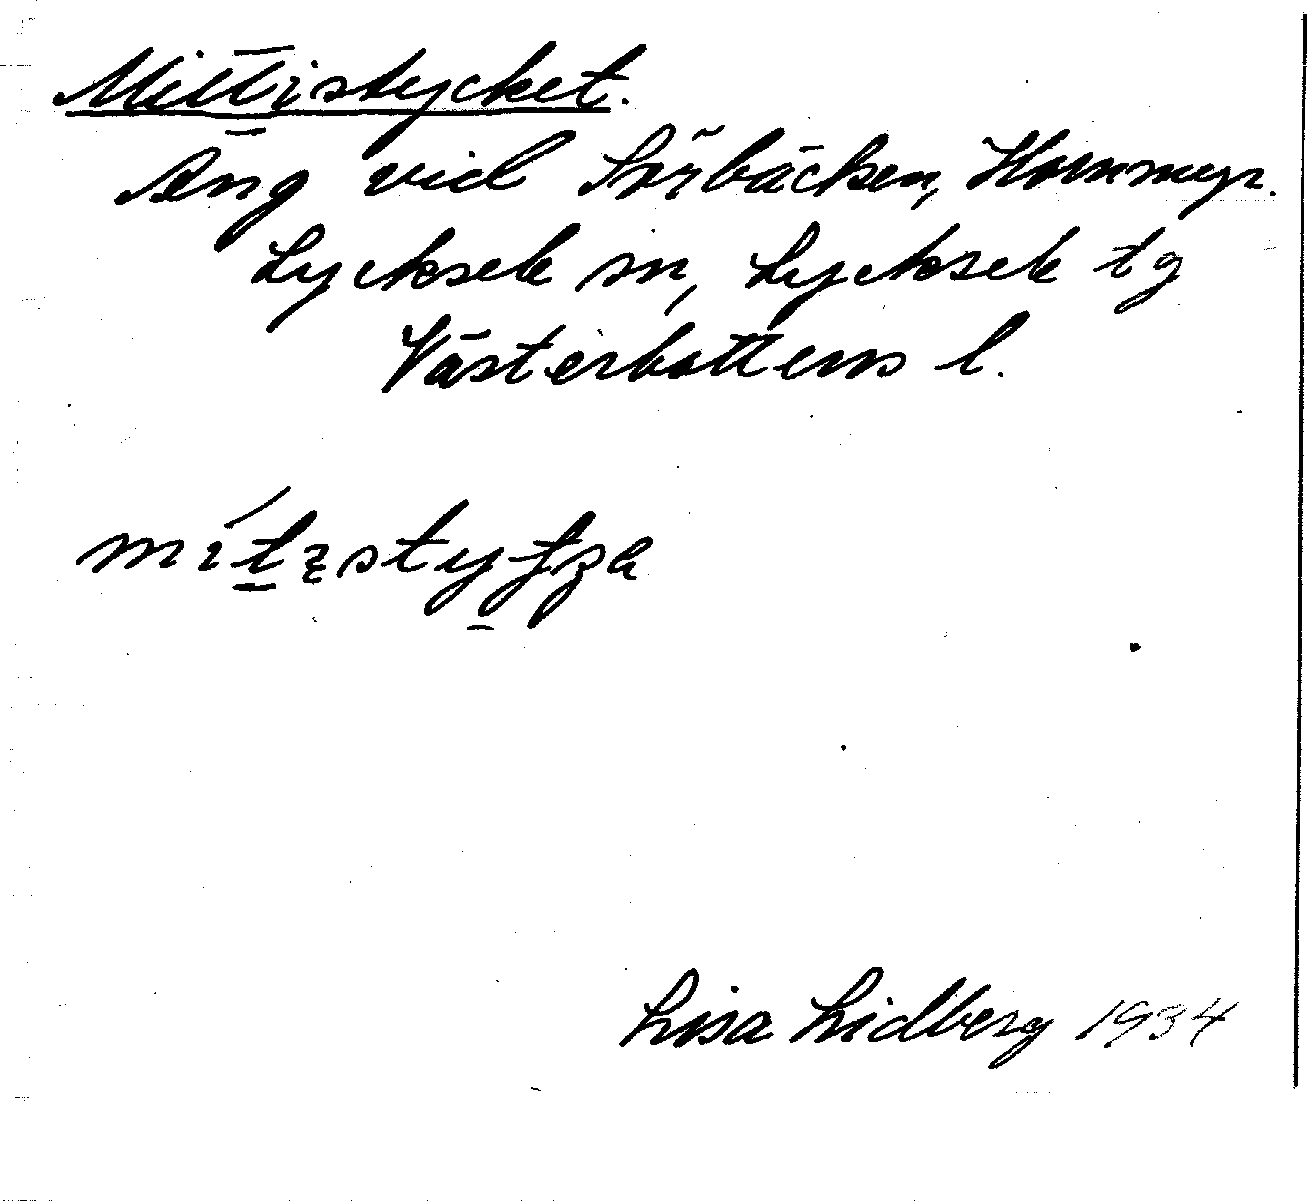 Mittistycket.
Äng vid Sörbäcken, Hornmyr.
Lycksele sn, Lycksele tg
Västerbottens l.
Lisa Lidberg 1934